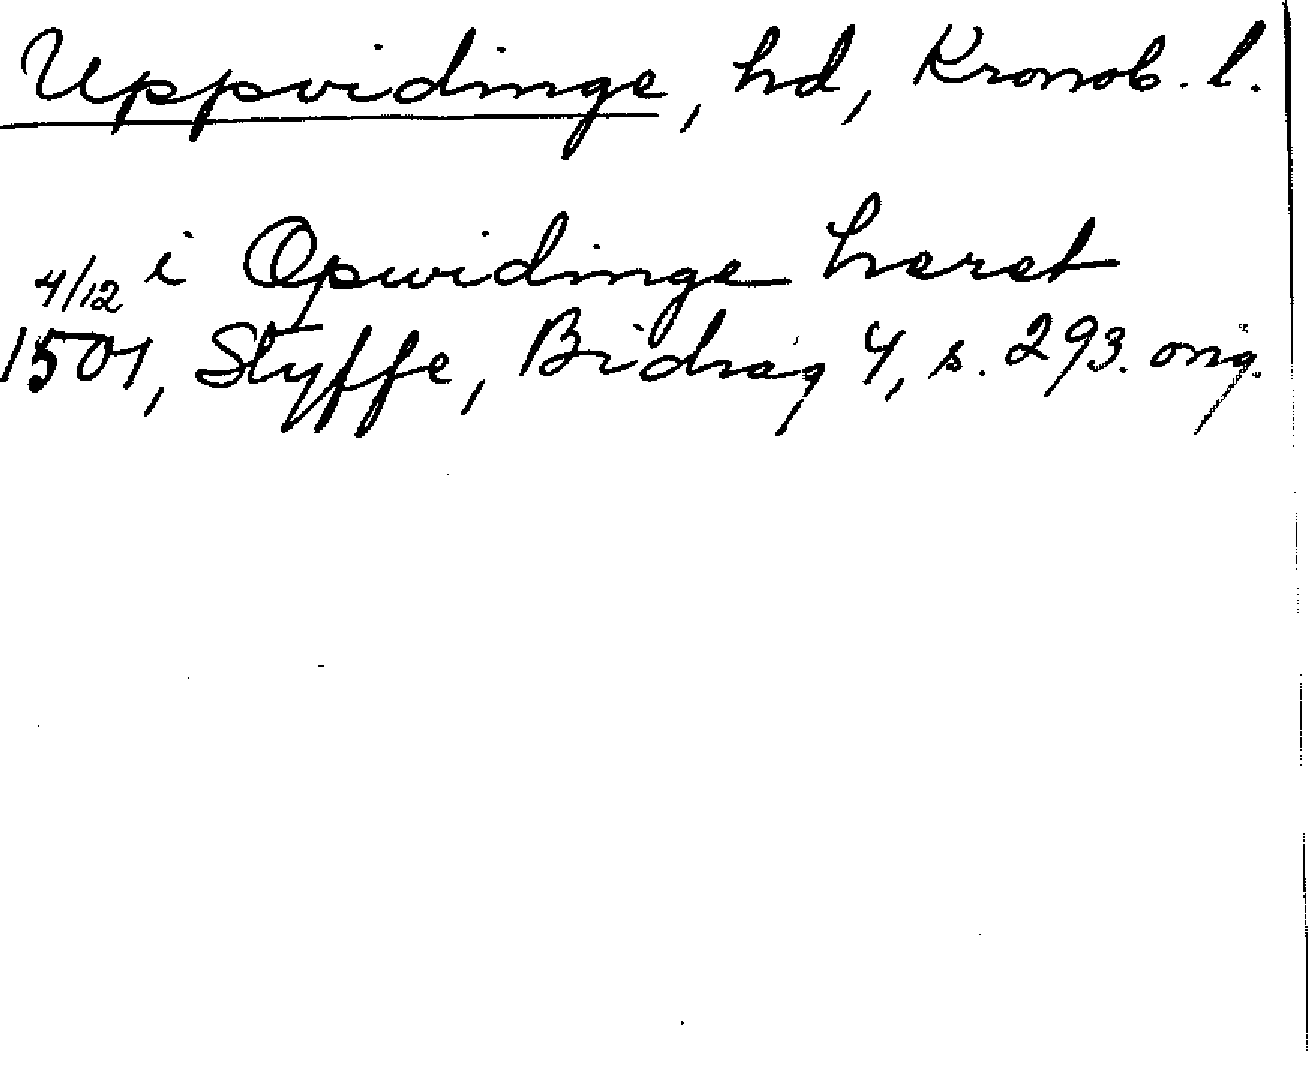 Uppvidinge, hd, Kronob. l.
i Opwidinge heret
4/12
1501, Styffe, Bidrag 4, s. 293. orig.